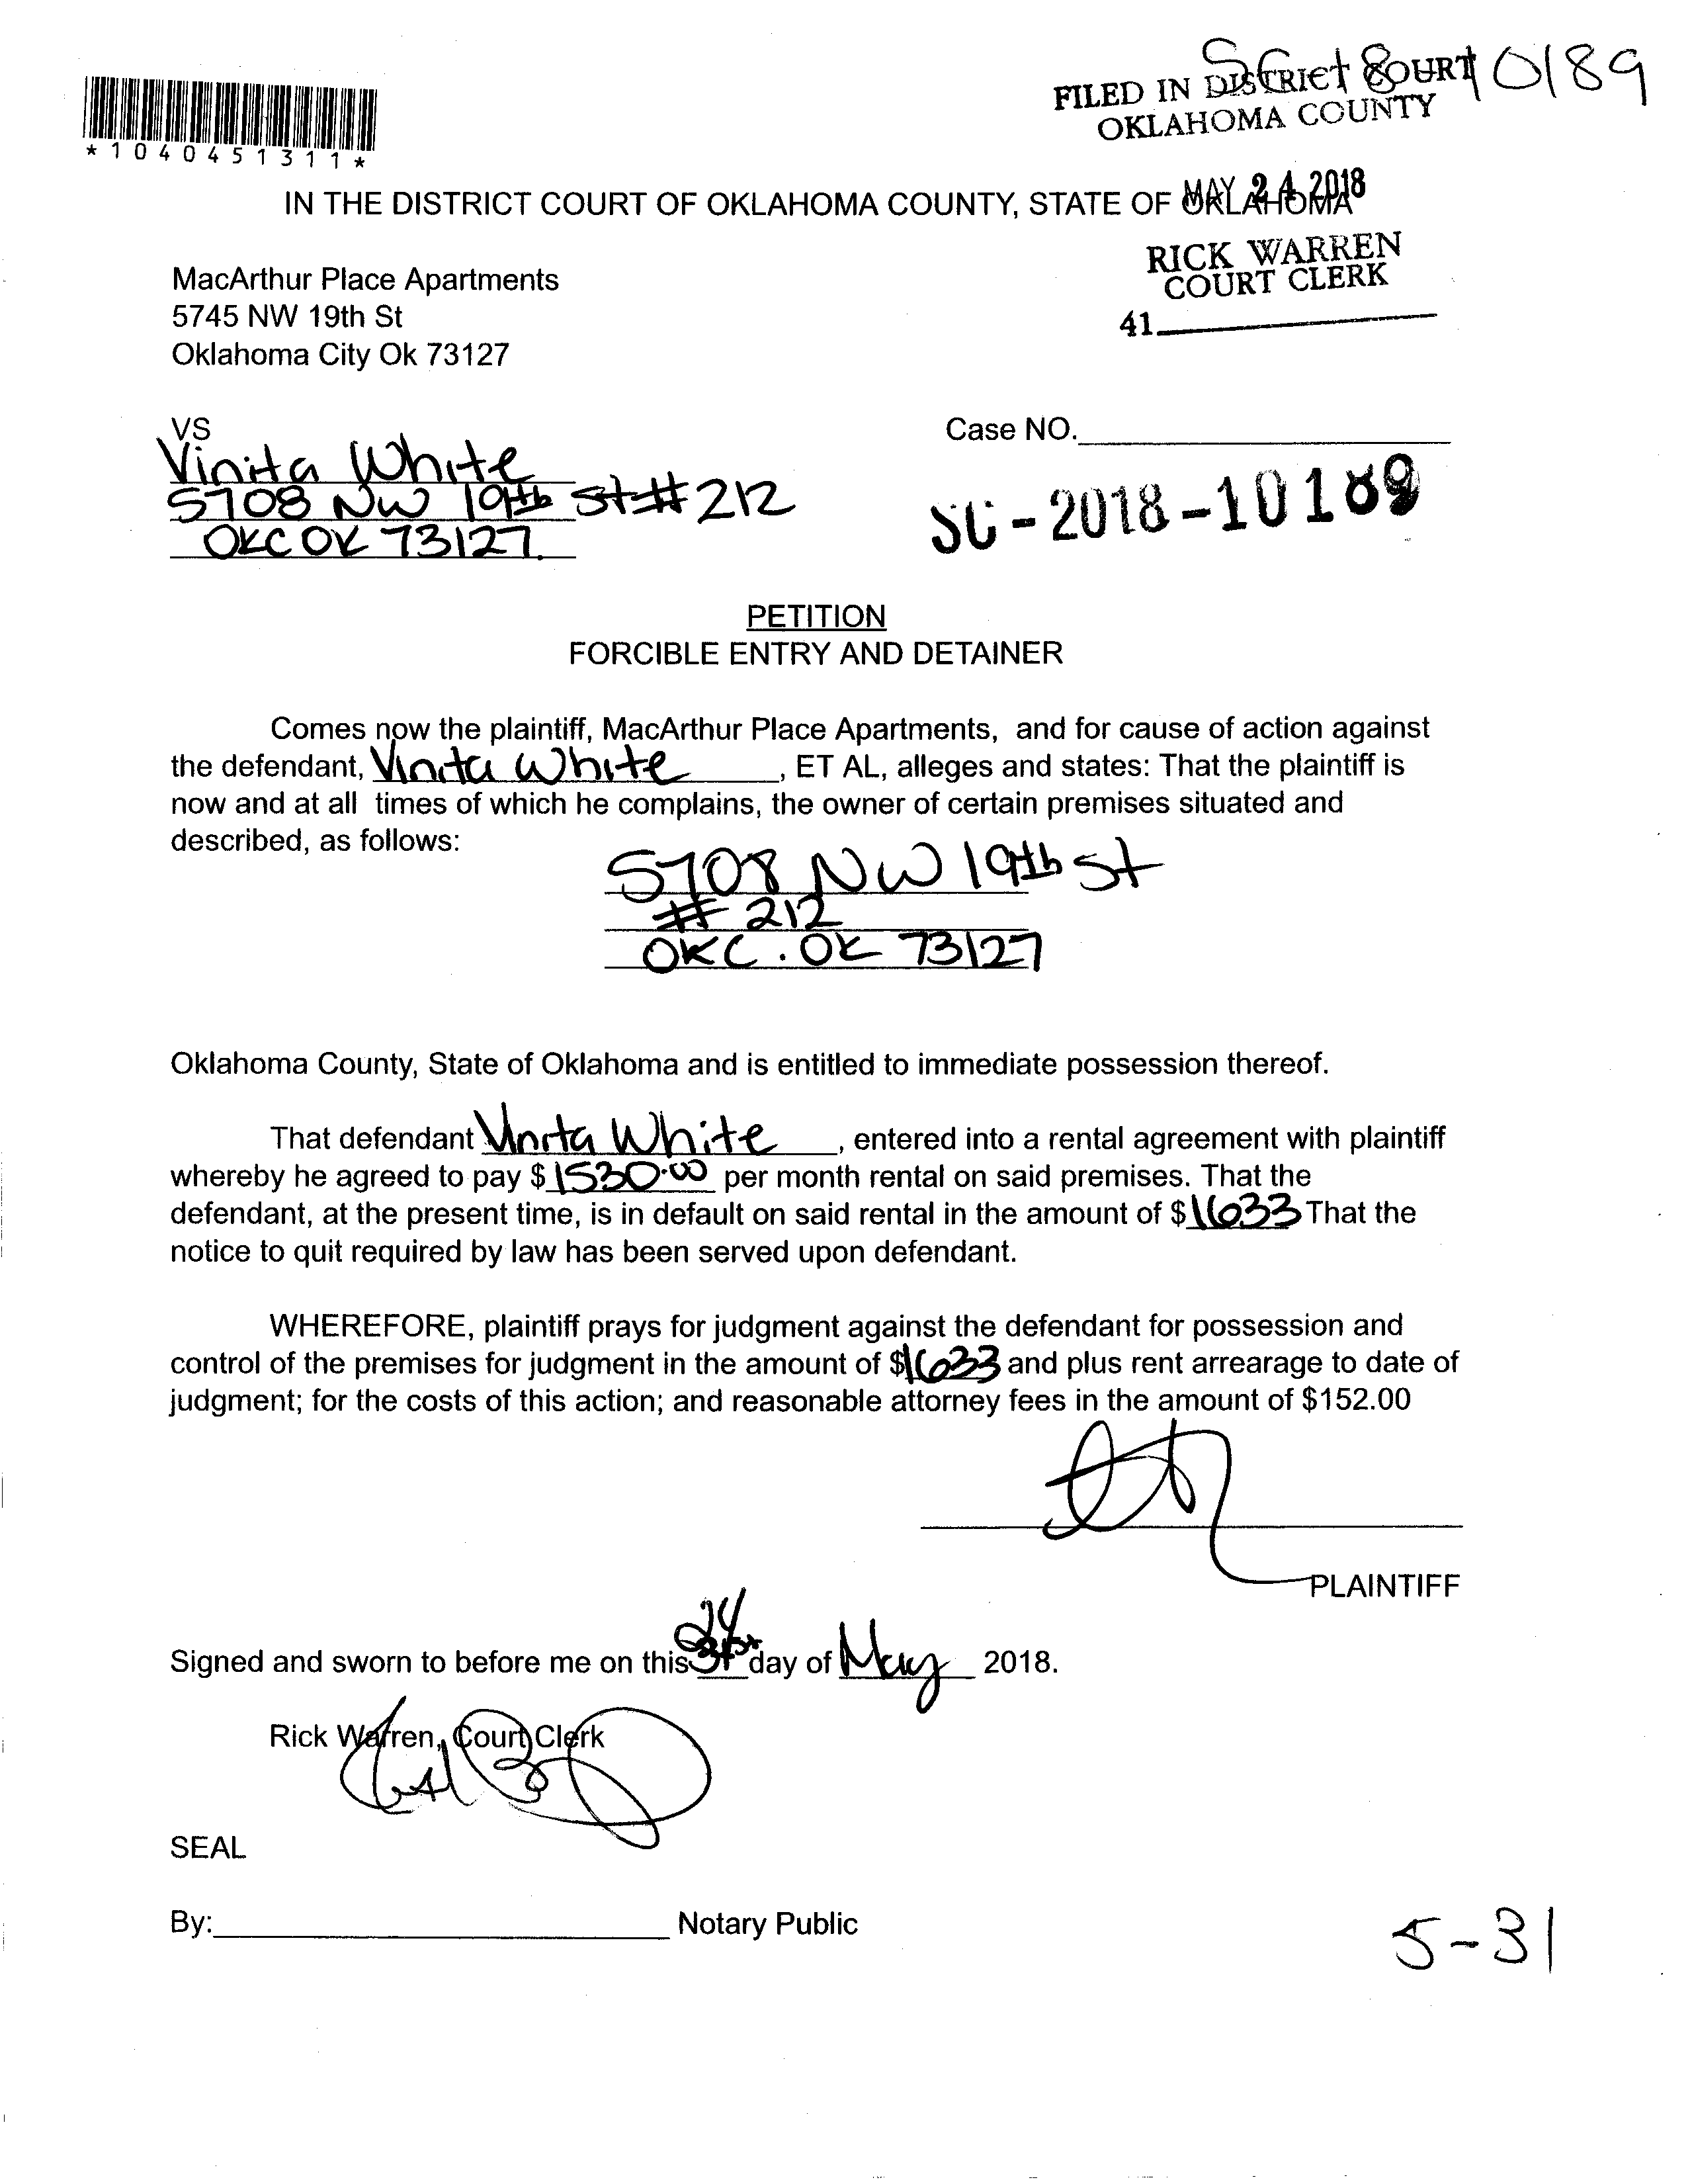 FILED IN DISTRICT COURT
OKLAHOMA COUNTY
0189
*1040451311*
MAY 24 2018
IN THE DISTRICT COURT OF OKLAHOMA COUNTY, STATE OF OKLAHOMA
RICK WARREN
COURT CLERK
41
MacArthur Place Apartments
5745 NW 19th St
Oklahoma City Ok 73127
VS
Case NO.
Vinita White
5708 NW 19th St # 212
OKC OK 73127.
SC-2018-10189
PETITION
FORCIBLE ENTRY AND DETAINER
Comes now the plaintiff, MacArthur Place Apartments, and for cause of action against
the defendant, Vinita White, ET AL, alleges and states: That the plaintiff is
now and at all times of which he complains, the owner of certain premises situated and
described, as follows:
5708 NW 19th St
# 212
OKC. OK 73127
Oklahoma County, State of Oklahoma and is entitled to immediate possession thereof.
That defendant Vinita White, entered into a rental agreement with plaintiff
whereby he agreed to pay $1530.00 per month rental on said premises. That the
defendant, at the present time, is in default on said rental in the amount of $1633 That the
notice to quit required by law has been served upon defendant.
WHEREFORE, plaintiff prays for judgment against the defendant for possession and
control of the premises for judgment in the amount of $1633 and plus rent arrearage to date of
judgment; for the costs of this action; and reasonable attorney fees in the amount of $152.00
PLAINTIFF
Signed and sworn to before me on this 24 day of May 2018.
Rick Warren, Court Clerk
SEAL
By: Notary Public
5-31